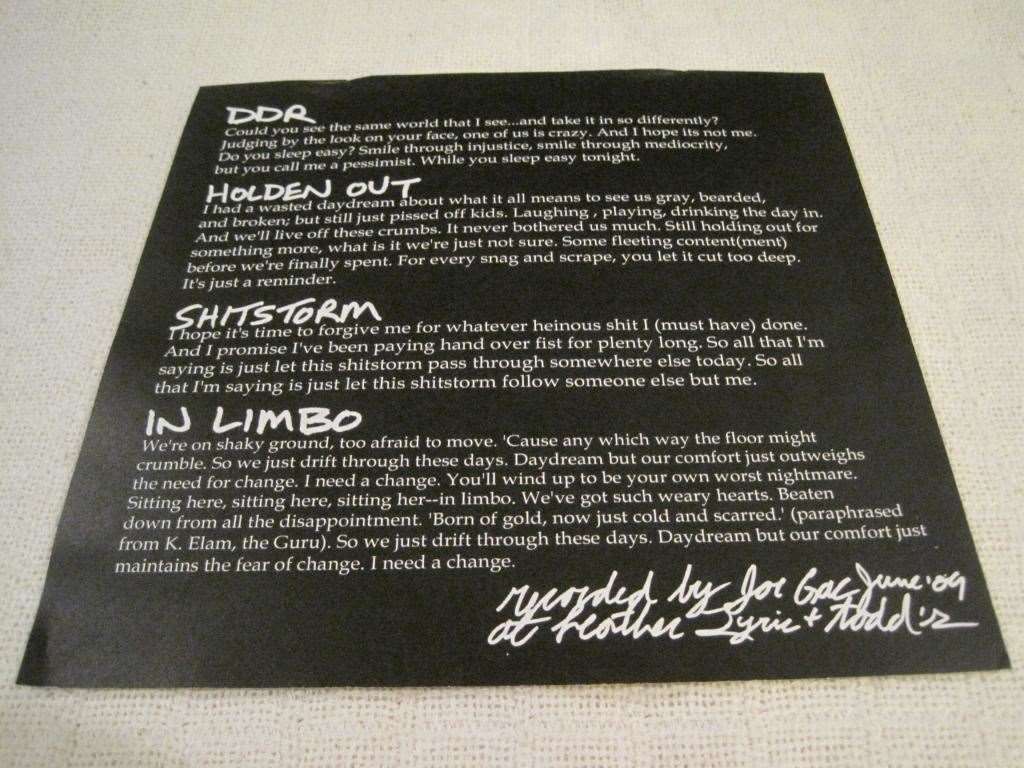 DDR
Could you see the same world that I see...and take it in so differently?
Judging by the look on your face, one of us is crazy. And I hope its not me.
Do you sleep easy? Smile through injustice, smile through mediocrity,
but you call me a pessimist. While you sleep easy tonight.
HOLDEN OUT
I had a wasted daydream about what it all means to see us gray, bearded,
and broken; but still just pissed off kids. Laughing , playing, drinking the day in.
And we'll live off these crumbs. It never bothered us much. Still holding out for
something more, what is it we're just not sure. Some fleeting content(ment)
before we're finally spent. For every snag and scrape, you let it cut too deep.
It's just a reminder.
SHITSTORM
I hope it's time to forgive me for whatever heinous shit I (must have) done.
And I promise I've been paying hand over fist for plenty long. So all that I'm
saying is just let this shitstorm pass through somewhere else today. So all
that I'm saying is just let this shitstorm follow someone else but me.
IN LIMBO
We're on shaky ground, too afraid to move. 'Cause any which way the floor might
crumble. So we just drift through these days. Daydream but our comfort just outweighs
the need for change. I need a change. You'll wind up to be your own worst nightmare.
Sitting here, sitting here, sitting her--in limbo. We've got such weary hearts. Beaten
down from all the disappointment. 'Born of gold, now just cold and scarred.' (paraphrased
from K. Elam, the Guru). So we just drift through these days. Daydream but our comfort just
maintains the fear of change. I need a change.
recorded by Joe Gac June '09
at heather Lyric + Todd's